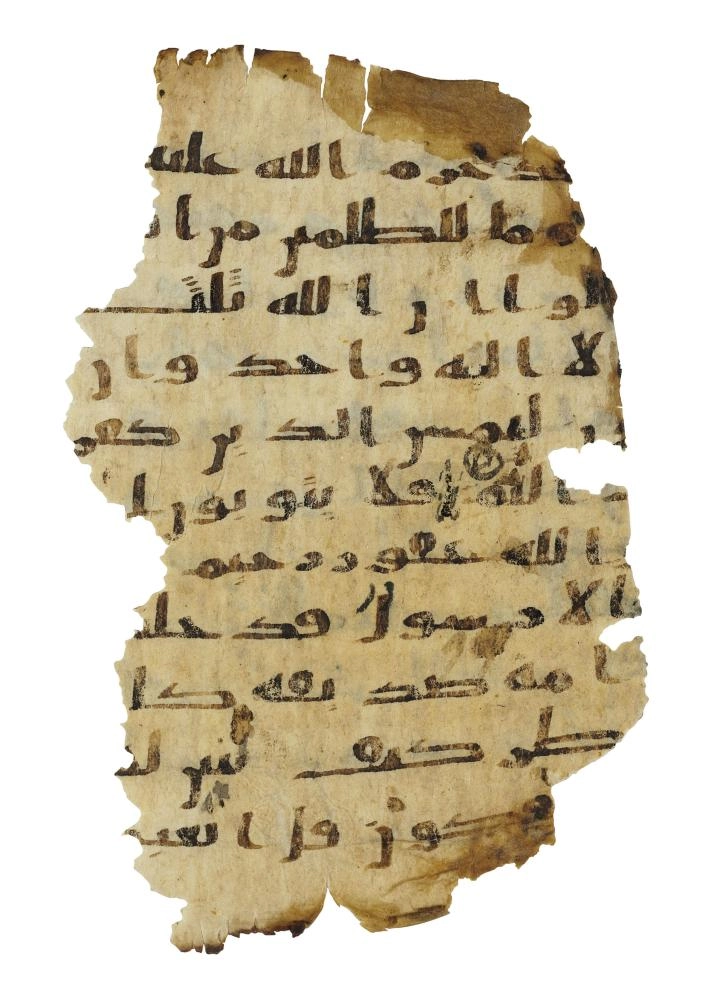 حرم الله عليـ
ما للظلمين من ا
قالوا ان الله ثلث
الا اله واحد وان
ليمسن الذين كفر
افلا يتوبون ا
الله غفور رحيم
الا رسول قد خلت
امه صديقه كا
ـظر كيف نبين لـ
يوفكون قل اتعبد